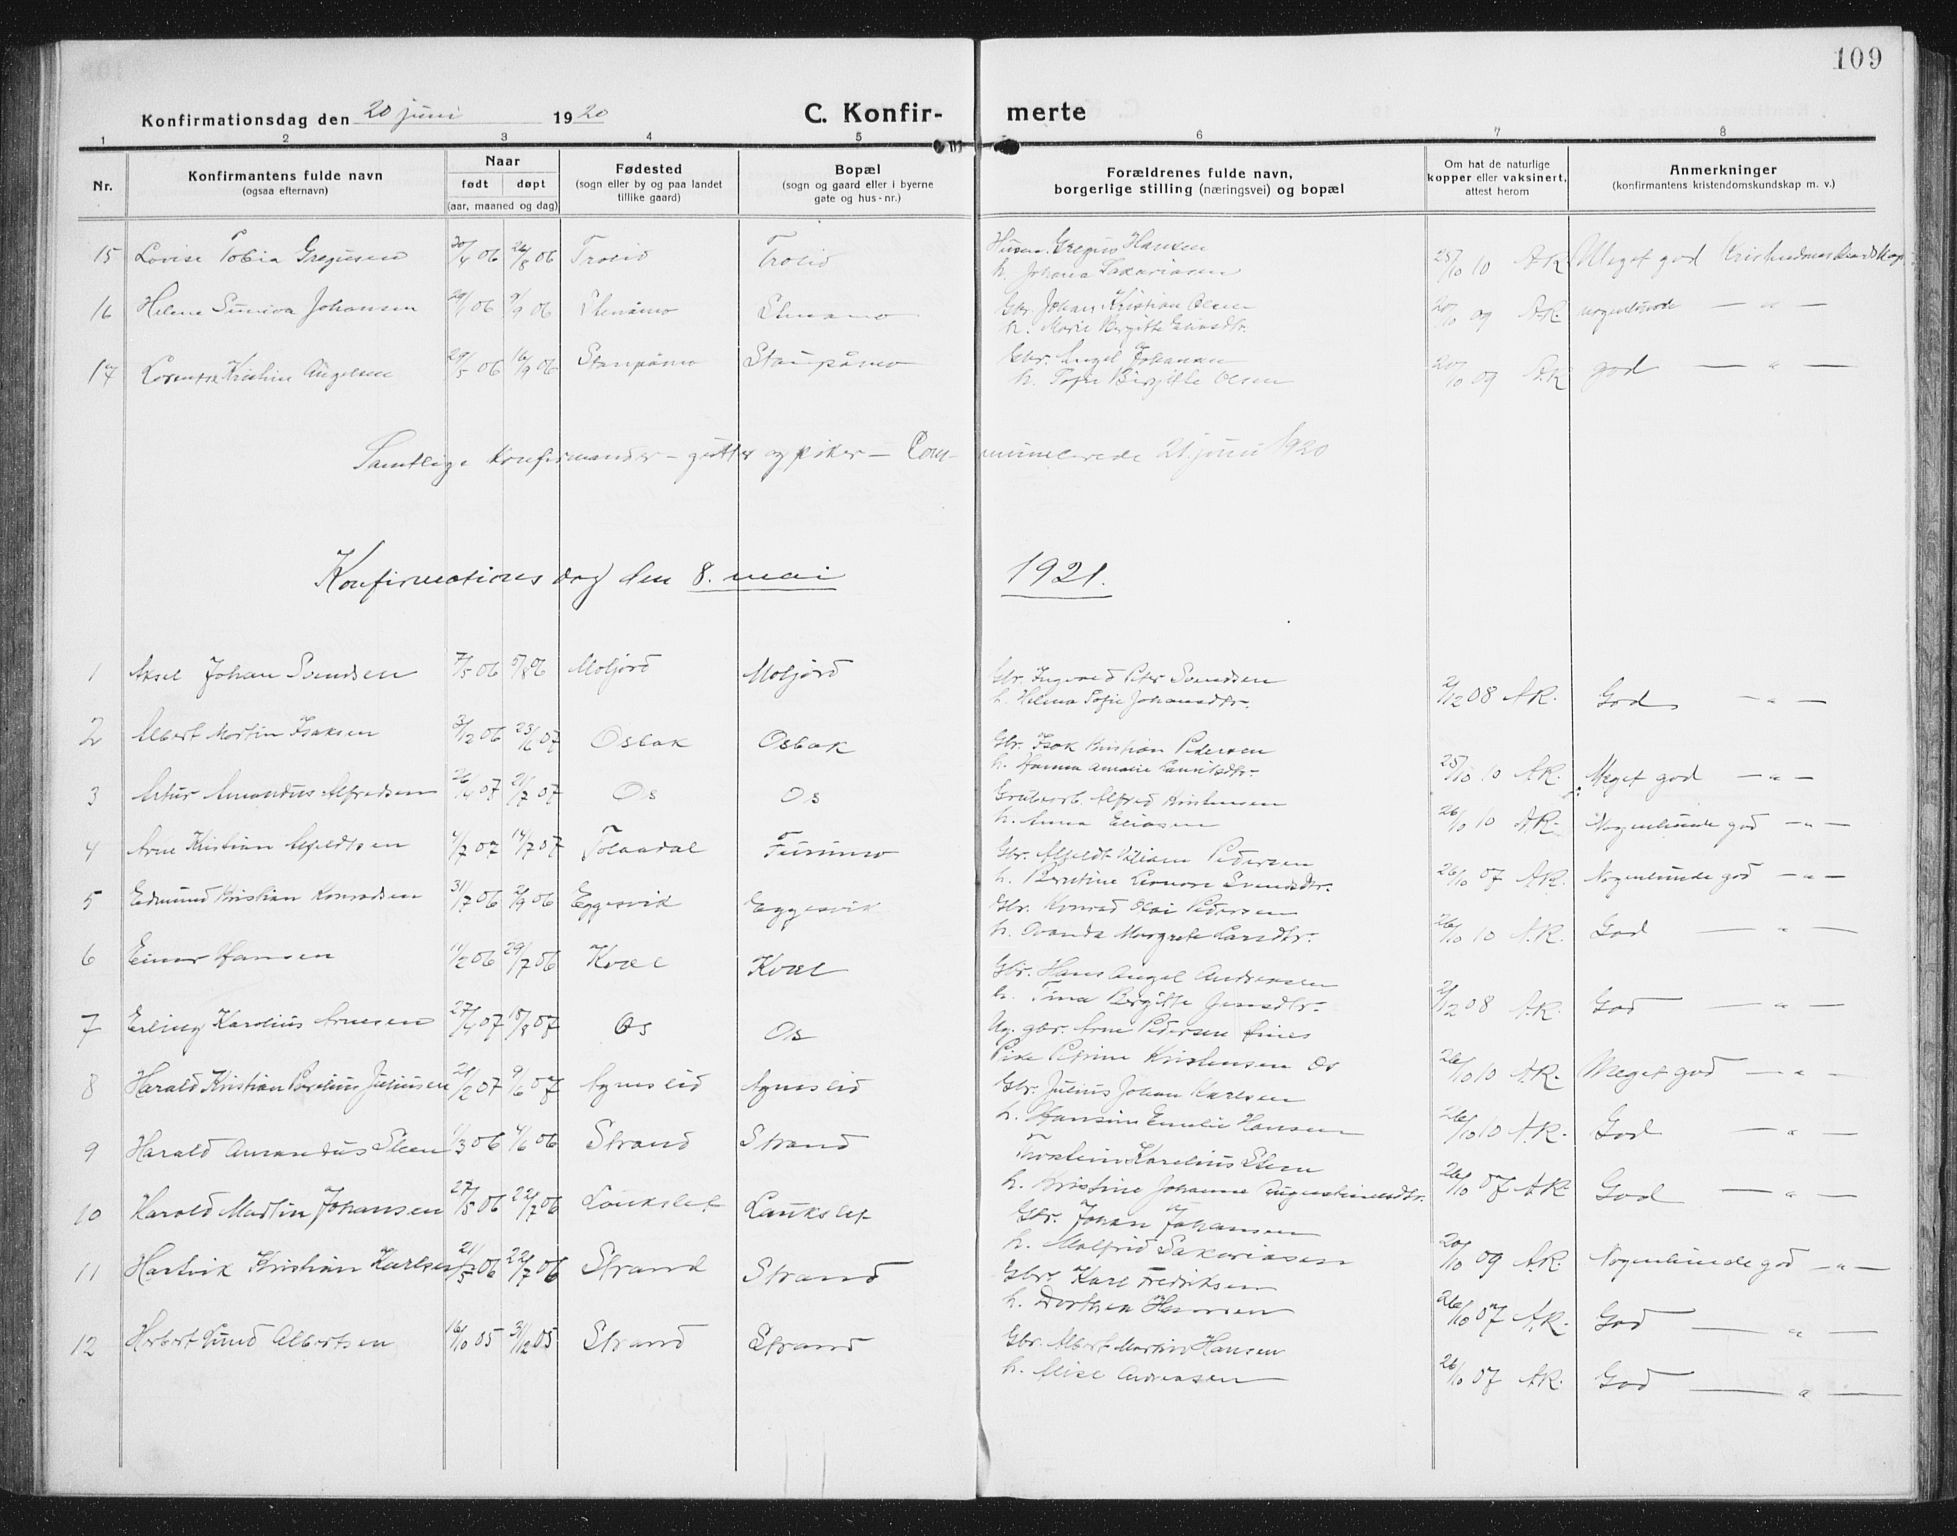 109
Konfirmationsdag den 20 juni 1920 C. Konfir- merte
1 2 3 4 5 6 7 8
Nr.
Konfirmantens fulde navn
(ogsaa efternavn)
Naar
født døpt
(aar, maaned og dag)
Fødested
(sogn eller by og paa landet
tillike gaard)
Bopæl
(sogn og gaard eller i byerne
gate og hus-nr.)
Forældrenes fulde navn,
borgerlige stilling (næringsvei) og bopæl
Om hat de naturlige
kopper eller vaksinert,
attest herom
Anmerkninger
(konfirmantens kristendomskundskap m. v.)
15 Lovise Tobia Gregusen 20/4 06 26/8 06 Trolid Trolid Gregus Hansen
h. Johana Zakariasen 25/10 10 A.R. Meget god Kristendomskundskap
16 Helene Suniva Johansen 29/1 06 9/9 06 Stenåmo Stenamo Gbr. Johan Kristian Olsen
h. Marie Bergitte 20/10 09 A.R. nogenlunde — " —
17 Lorentse Kristine Angelsen 29/5 06 16/9 06 Staupåmo Staupåmo Gbr. Angel Johansen
h. Sofie Birgitte Olsen 20/10 09 A.R. god — " —
Samtlige konfirmander - gutter og piker - Communicerede 21 juni 1920
Konfirmationsdag den 8. mai 1921.
1 Aksel Johan Svendsen 7/5 06 5/8 06 Moljord Moljord Gbr. Ingvard Peter Svendsen
h. Helma Sofie Johansdtr. 2/12 08 A.R. God — " —
2 Albert Martin Isaksen 3/12 06 23/6 07 Osbak Osbak Gbr. Isak Kristian Pedersen
h. Hanna Amalie Lauritsdtr. 25/10 10 A.R. Meget god — " —
3 Artur Amandus Alfredsen 26/4 07 21/7 07 Os Os Grubearb. Alfred Kristensen
h. Anna Eliasen 26/10 10 A.R. Nogenlunde god — " —
4 Arne Kristian Alfeldtsen 4/7 07 14/7 07 Tolaadal Furumo Gbr. Alfeldt Viliam Pedersen
h. Berntine Leonore Svendsdtr. 26/10 07 A.R. Nogenlunde god — " —
5 Edmund Kristian Konradsen 31/7 06 2/9 06 Eggesvik Eggesvik Gbr. Konrad Pedersen
h. Ovanda Margrete Larsdtr. 26/10 10 A.R. God — " —
6 Einar Hansen 11/2 06 29/7 06 Kvæl Kvæl Gbr. Hans Angel Andersen
h. Tina Bergitte Jensdtr. 2/12 08 A.R. God — " —
7 Erling Karolius Arnesen 27/4 07 18/8 07 Os Os Ug. gbr. Arne Pedersen Fines
Pike Petrine Kristensen Os 26/10 10 A.R. Meget god — " —
8 Harald Kristian Juliusen 21/2 07 9/6 07 Agnesleid Agnesleid Gbr. Julius Johan Karlsen
h. Hansine Emelie Hansen 26/10 10 A.R. God — " —
9 Harald Amandus Steen 1/3 06 4/6 06 Strand Strand Torstein Karelius Steen
h. Kristine Johanne Augustinusdtr. 26/10 07 A.R. God — " —
10 Harald Martin Johansen 27/5 06 22/7 06 Laukslet Laukslet Gbr. Johan Johansen
h. Malfrid Sakariasen 20/10 09 A.R. Nogenlunde god — " —
11 Hartvik Kristian Karlsen 21/5 06 22/7 06 Strand Strand Gbr. Karl Fredriksen
h. Dorthea Hansen 26/10 07 A.R. God — " —
12 Herbert Lund Albertsen 16/10 05 3/12 05 Strand Strand Gbr. Albert Martin Hansen
h. Alise Andreasen 26/10 07 A.R. God — " —